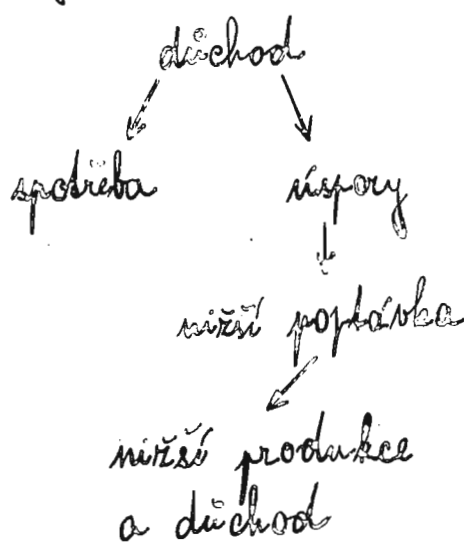 důchod
spotřeba úspory
nižší poptávka
nižší produkce
a důchod